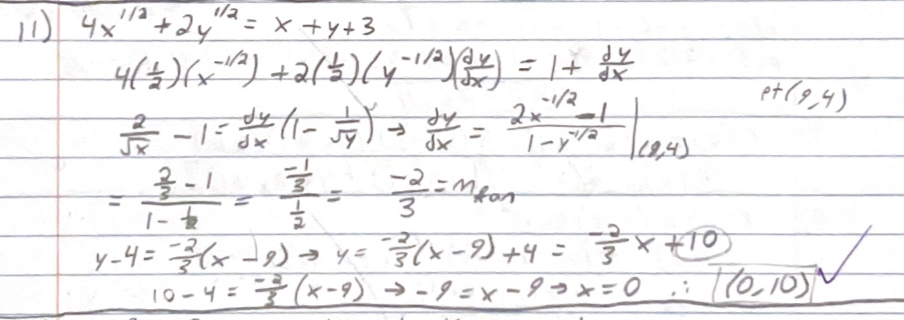 11) 4x^1/2 + 2y^1/2 = x + y + 3
4(1/2)(x^-1/2) + 2(1/2)(y^-1/2)(dy/dx) = 1 + dy/dx
pt(9,4)
2/√x - 1 = dy/dx (1 - 1/√y) → dy/dx = (2x^-1/2 - 1)/(1 - y^-1/2) |(9,4)
= (2/3 - 1)/(1 - 1/2) = (-1/3)/(1/2) = -2/3 = m tan
y - 4 = -2/3 (x - 9) → y = -2/3 (x - 9) + 4 = -2/3 x + 10
10 - 4 = -2/3 (x - 9) → -9 = x - 9 → x = 0 ∴ (0,10) ✓